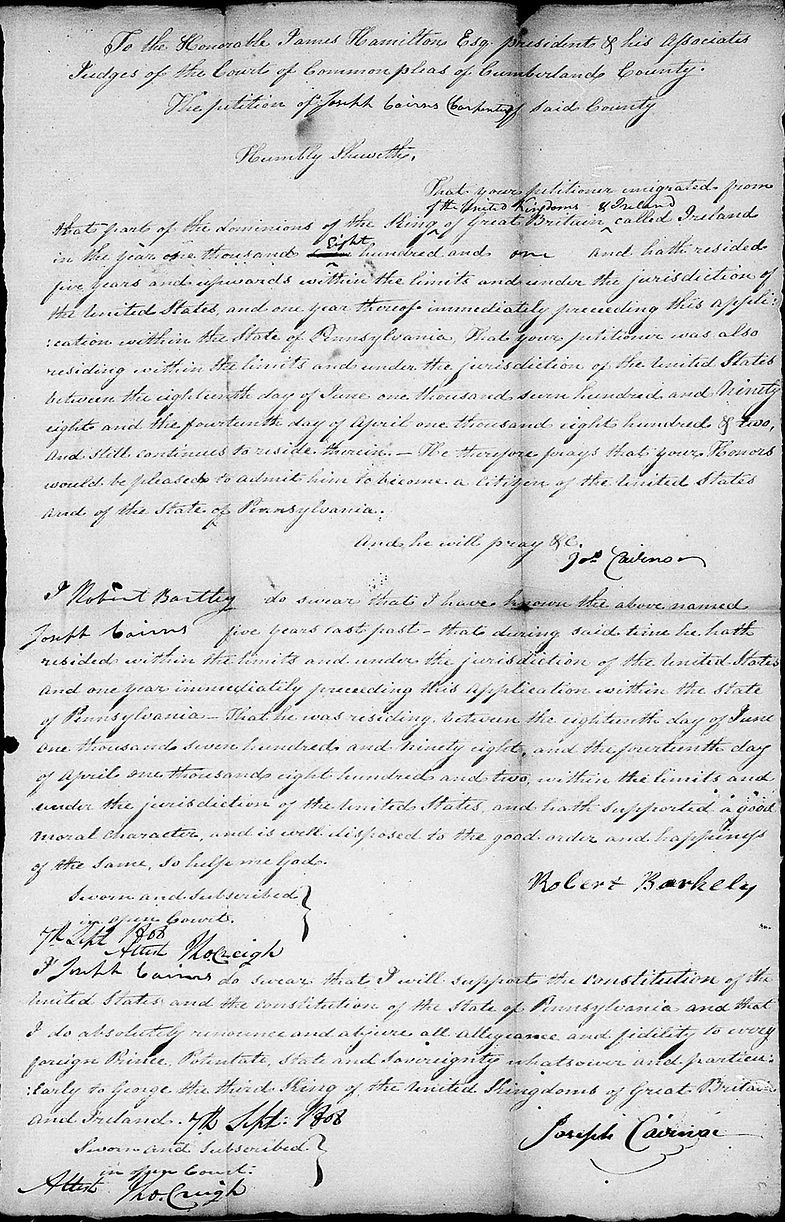 To the Honorable James Hamilton Esq. president & his Associates
Judges of the Court of Common pleas of Cumberland County.
The petition of Joseph Cairns Carpenter of said County
Humbly Sheweth,
That your petitioner imigrated from
of the United Kingdoms & Ireland
that part of the dominions of the King of Great Britain called Ireland
Eight
in the year one thousand hundred and one and hath resided
five years and upwards within the limits and under the jurisdiction of
the United States, and one year thereof immediately preceeding this appli:
:cation within the State of Pennsylvania, That your petitioner was also
residing within the limits and under the jurisdiction of the United States
between the eighteenth day of June one thousand seven hundred and Ninety
eight and the fourteenth day of April one thousand eight hundred & two,
And still continues to reside therein. — He therefore prays that your Honors
would be pleased to admit him to become a Citizen of the United States
and of the State of Pennsylvania.
And he will pray &c.
Jos Cairns
I Robert Bartley do swear that I have known the above named
Joseph Cairns five years last past — that during said time he hath
resided within the limits and under the jurisdiction of the United States
and one year immediately preceeding this Application within the State
of Pennsylvania — That he was residing between the eighteenth day of June
one thousand seven hundred and ninety eight, and the fourteenth day
of April one thousand eight hundred and two, within the limits and
under the jurisdiction of the United States, and hath supported a good
moral character, and is well disposed to the good order and happiness
of the same, So help me God.
Robert Barkely
Sworn and Subscribed
in open Court.
7th Sept 1808
Attest Tho Creigh
I Joseph Cairns do swear that I will support the constitution of the
United States and the constitution of the State of Pennsylvania and that
I do absolutely renounce and abjure all allegiance and fidility to every
foreign Prince, Potentate, State and Sovereignty whatsoever and particu:
:larly to George the third King of the United Kingdoms of Great Britain
and Ireland. 7th Sept: 1808
Joseph Cairns
Sworn and Subscribed
in open Court:
Attest Tho. Creigh